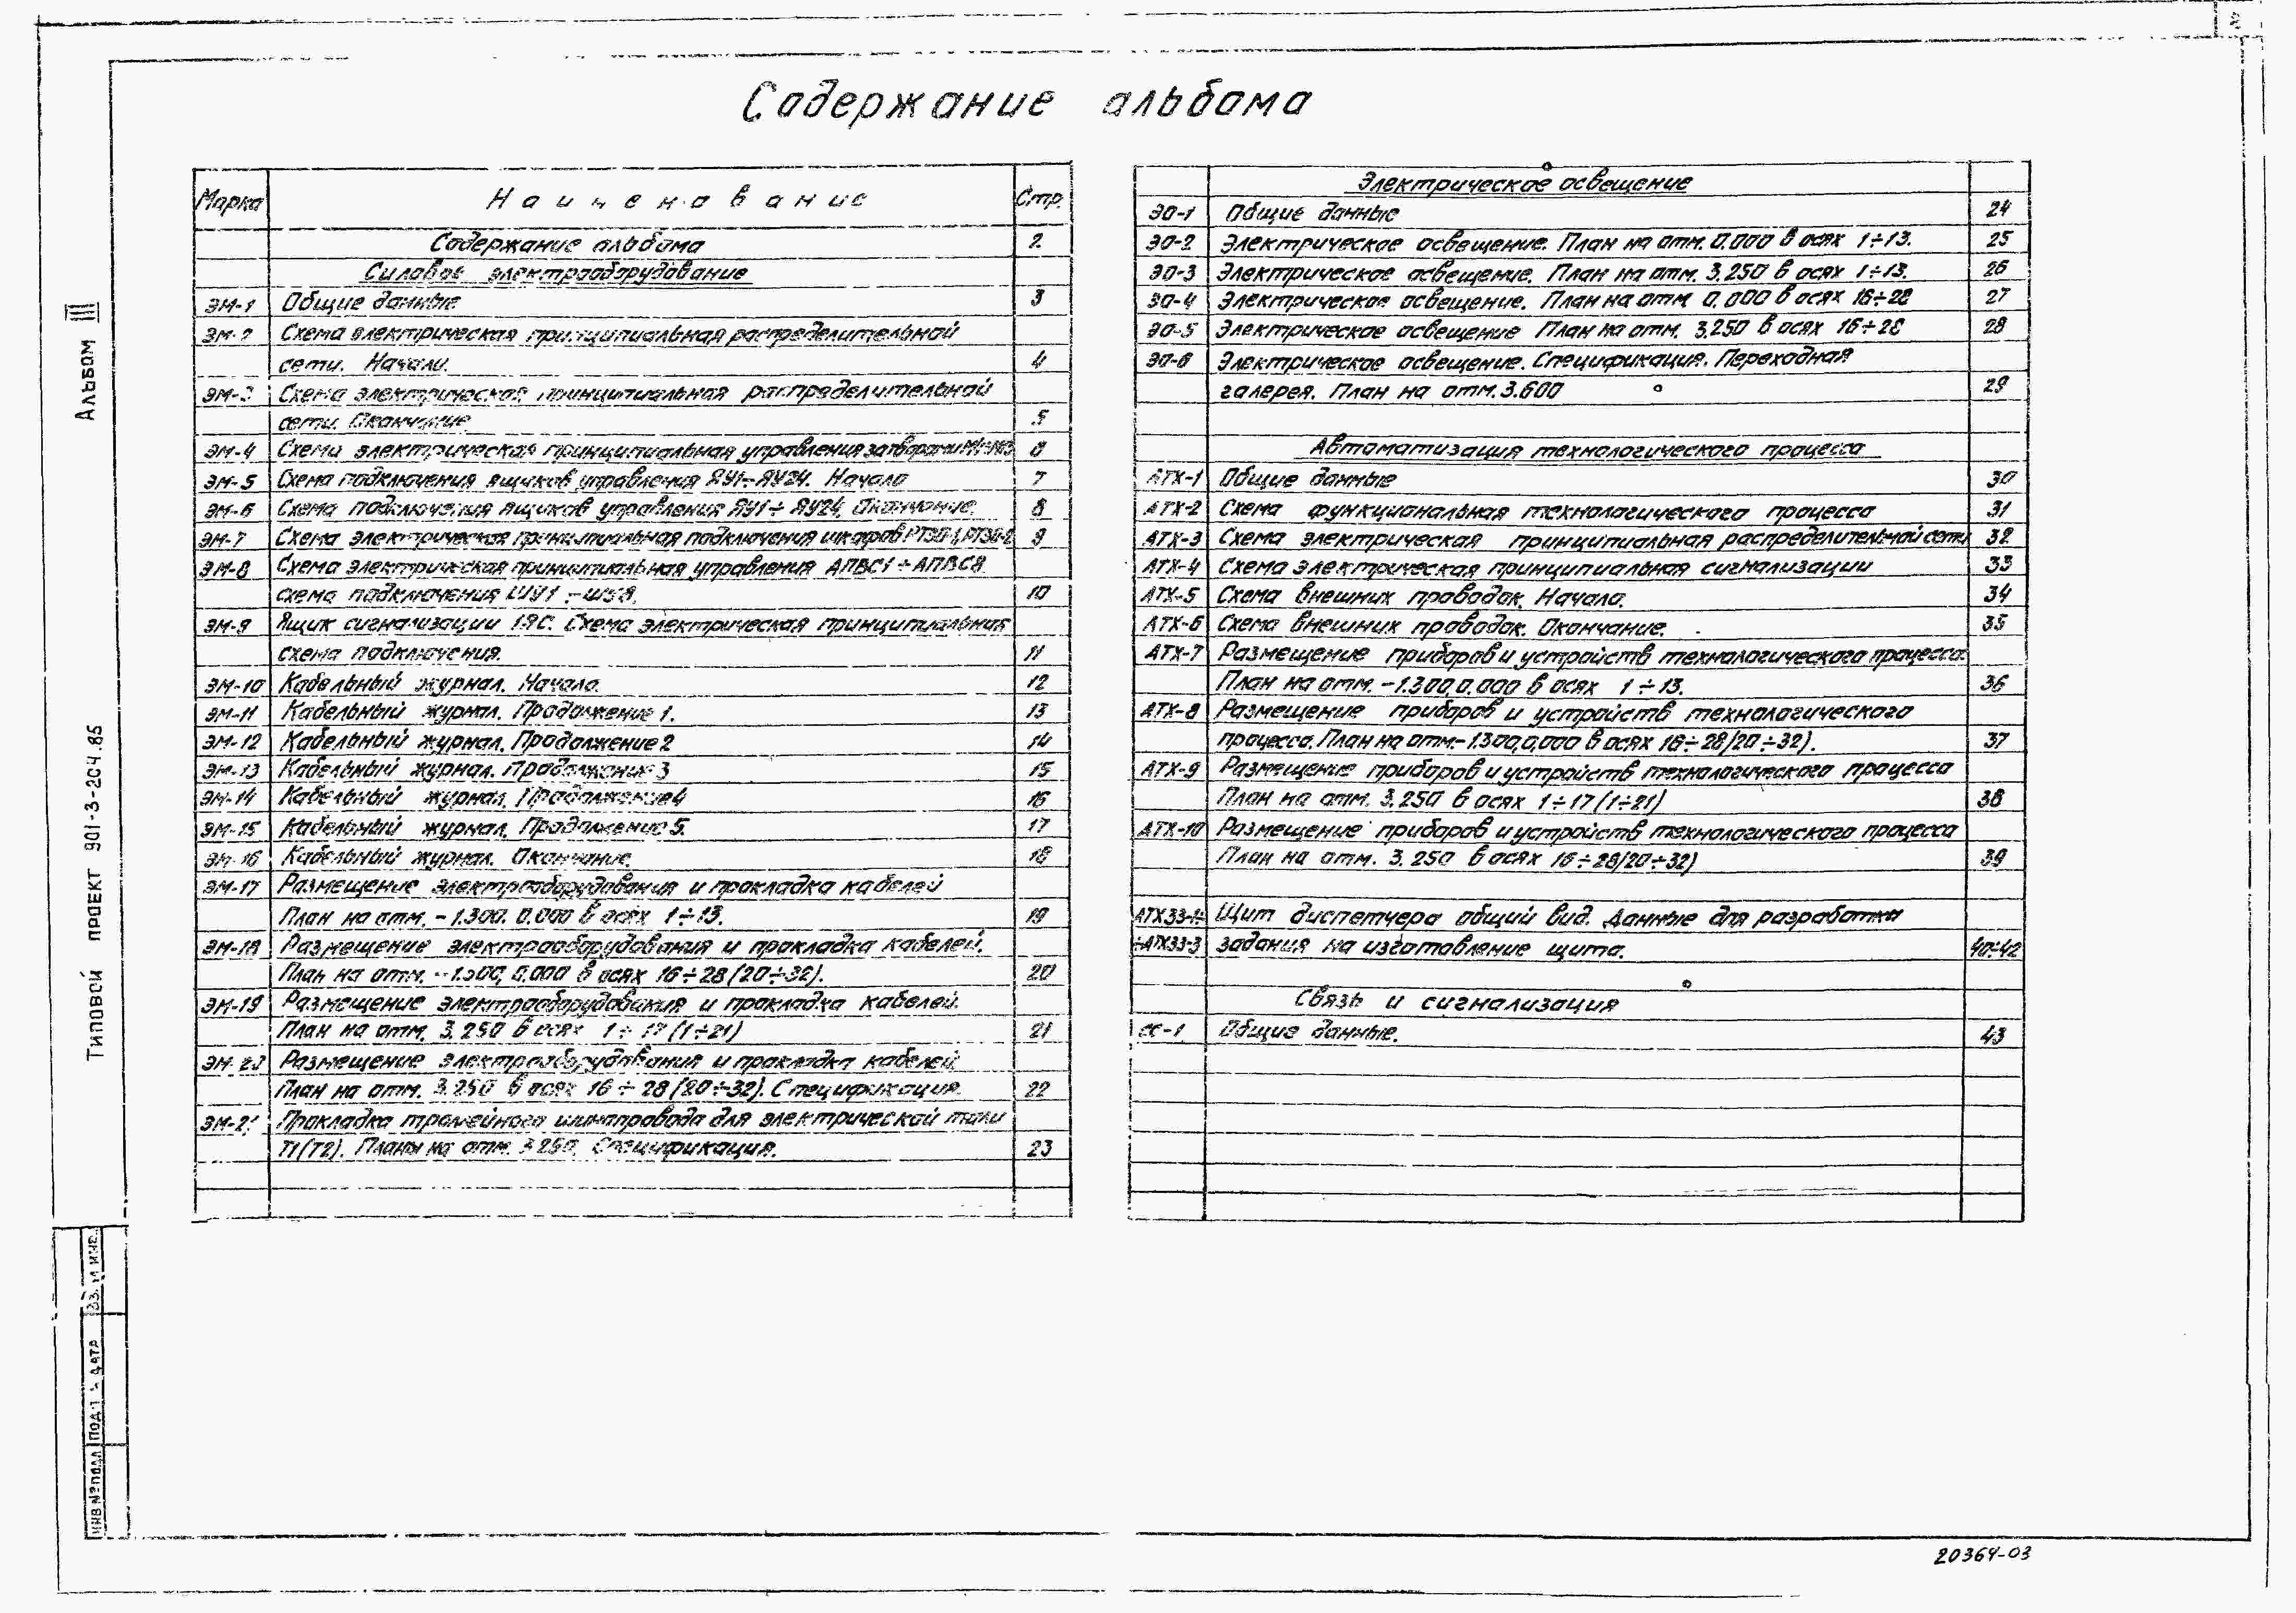 Содержание альбома
Альбом III
Типовой проект 901-3-204.85
Марка Наименование Стр.
Содержание альбома 2
Силовое электрооборудование
ЭМ-1 Общие данные 3
ЭМ-2 Схема электрическая принципиальная распределительной
сети. Начало. 4
ЭМ-3 Схема электрическая принципиальная распределительной
сети. Окончание 5
ЭМ-4 Схема электрическая принципиальная управления затворами 6
ЭМ-5 Схема подключения ящиков управления ЯУ1÷ЯУ24. Начало 7
ЭМ-6 Схема подключения ящиков управления ЯУ1÷ЯУ24. Окончание. 8
ЭМ-7 Схема электрическая принципиальная подключения шкафов РТ30-1, РТ30-2 9
ЭМ-8 Схема электрическая принципиальная управления АПВС1÷АПВС8
схема подключения ШУ1÷ШУ8. 10
ЭМ-9 Ящик сигнализации 1ЯС. Схема электрическая принципиальная
схема подключения. 11
ЭМ-10 Кабельный журнал. Начало. 12
ЭМ-11 Кабельный журнал. Продолжение 1. 13
ЭМ-12 Кабельный журнал. Продолжение 2 14
ЭМ-13 Кабельный журнал. Продолжение 3 15
ЭМ-14 Кабельный журнал. Продолжение 4 16
ЭМ-15 Кабельный журнал. Продолжение 5. 17
ЭМ-16 Кабельный журнал. Окончание. 18
ЭМ-17 Размещение электрооборудования и прокладка кабелей
План на отм. -1.300. 0.000 в осях 1÷13. 19
ЭМ-18 Размещение электрооборудования и прокладка кабелей.
План на отм. -1.300, 0.000 в осях 16÷28 (20÷32). 20
ЭМ-19 Размещение электрооборудования и прокладка кабелей.
План на отм. 3.250 в осях 1÷17 (1÷21) 21
ЭМ-20 Размещение электрооборудования и прокладка кабелей.
План на отм. 3.250 в осях 16÷28 (20÷32). Спецификация. 22
ЭМ-21 Прокладка троллейного шинопровода для электрической тали
Т1(Т2). Планы на отм. 3.250. Спецификация. 23
Электрическое освещение
ЭО-1 Общие данные 24
ЭО-2 Электрическое освещение. План на отм. 0.000 в осях 1÷13. 25
ЭО-3 Электрическое освещение. План на отм. 3.250 в осях 1÷13. 26
ЭО-4 Электрическое освещение. План на отм. 0.000 в осях 16÷28 27
ЭО-5 Электрическое освещение План на отм. 3.250 в осях 16÷28 28
ЭО-6 Электрическое освещение. Спецификация. Переходная
галерея. План на отм. 3.600 29
Автоматизация технологического процесса
АТХ-1 Общие данные 30
АТХ-2 Схема функциональная технологического процесса 31
АТХ-3 Схема электрическая принципиальная распределительной сети 32
АТХ-4 Схема электрическая принципиальная сигнализации 33
АТХ-5 Схема внешних проводок. Начало. 34
АТХ-6 Схема внешних проводок. Окончание. 35
АТХ-7 Размещение приборов и устройств технологического процесса.
План на отм. -1.300, 0.000 в осях 1÷13. 36
АТХ-8 Размещение приборов и устройств технологического
процесса. План на отм.-1.300, 0.000 в осях 16÷28 (20÷32). 37
АТХ-9 Размещение приборов и устройств технологического процесса
План на отм. 3.250 в осях 1÷17 (1÷21) 38
АТХ-10 Размещение приборов и устройств технологического процесса
План на отм. 3.250 в осях 16÷28 (20÷32) 39
АТХ33-1÷ Щит диспетчера общий вид. Данные для разработки
÷АТХ33-3 задания на изготовление щита. 40÷42
Связь и сигнализация
СС-1 Общие данные. 43
ИНВ № ПОДЛ
ДАТА
20364-03